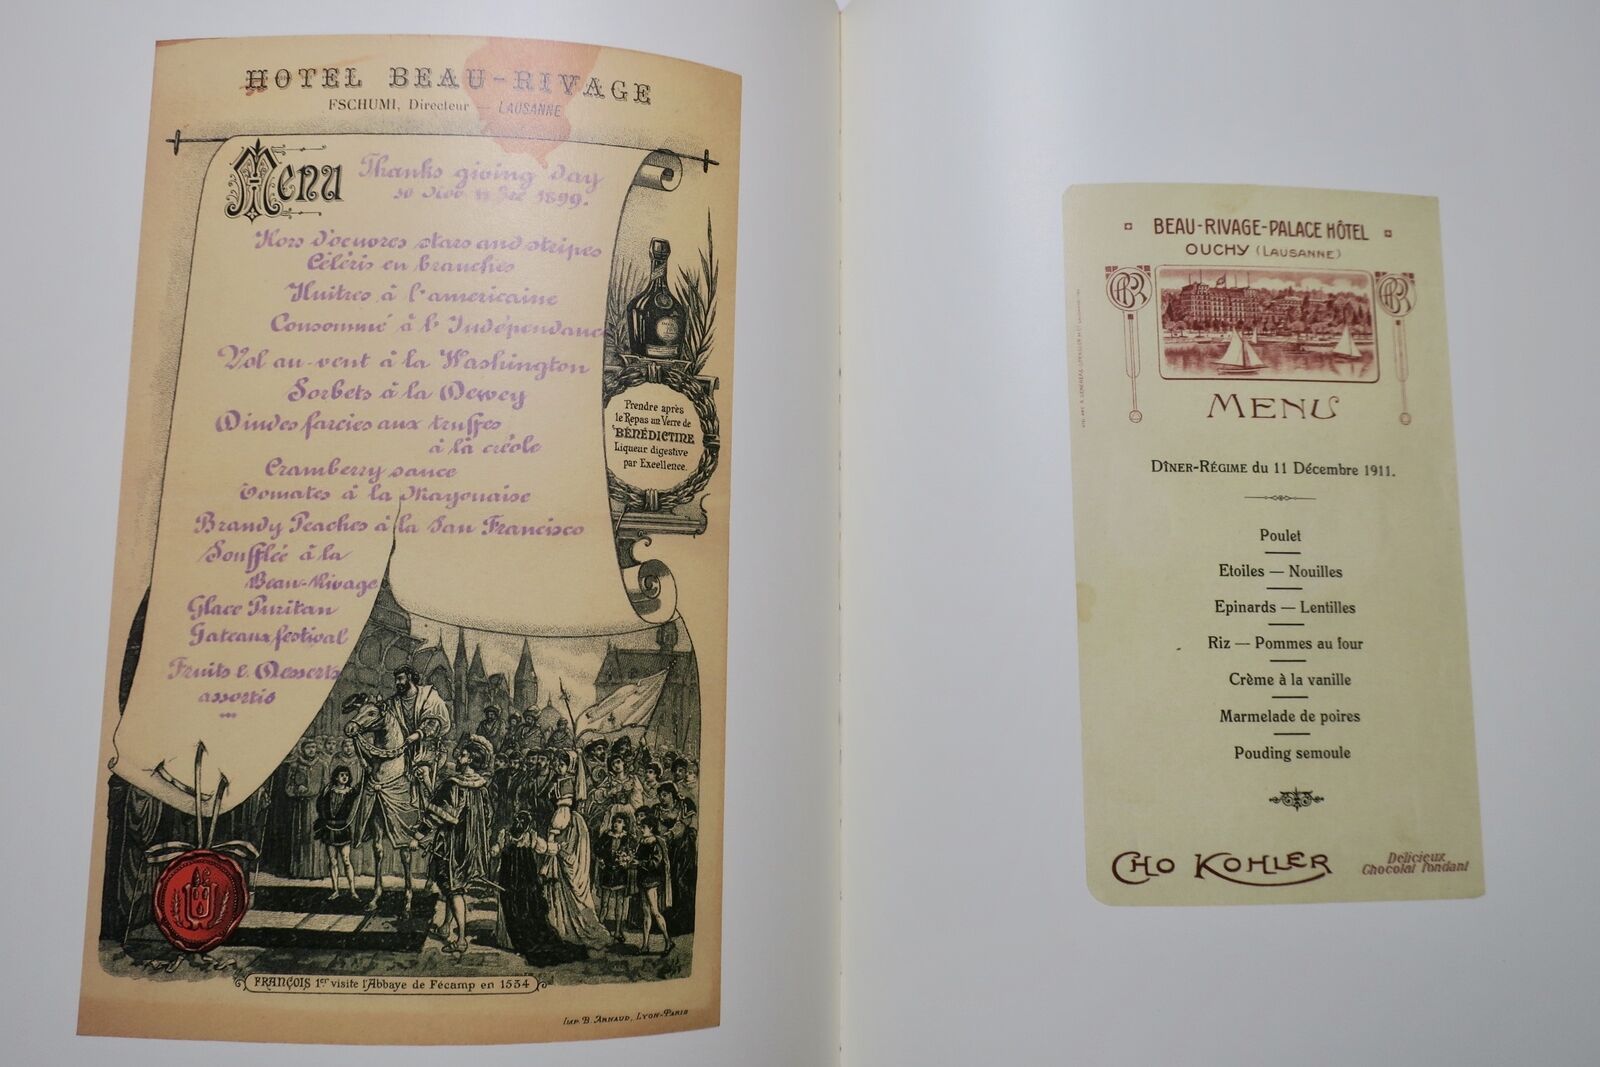 HOTEL BEAU-RIVAGE
FSCHUMI, Directeur — LAUSANNE
Menu
Thanks giving Day
30 Nov 1899.
Hors d'oeuvres stars and stripes
Céléris en branches
Huitres à l'americaine
Consommé à l'Indépendance
Vol au-vent à la Washington
Sorbets à la Dewey
Dindes farcies aux truffes
à la créole
Cramberry sauce
Tomates à la Mayonaise
Brandy Peaches à la San Francisco
Soufflée à la
Beau-Rivage
Glace Puritan
Gateaux festival
Fruits & Desserts
assortis
Prendre après
le Repas un Verre de
BÉNÉDICTINE
Liqueur digestive
par Excellence.
FRANÇOIS 1er visite l'Abbaye de Fécamp en 1534
IMP. B. ARNAUD, LYON-PARIS
BEAU-RIVAGE-PALACE HÔTEL
OUCHY (LAUSANNE)
BR
BR
MENU
DÎNER-RÉGIME du 11 Décembre 1911.
Poulet
Etoiles — Nouilles
Epinards — Lentilles
Riz — Pommes au four
Crème à la vanille
Marmelade de poires
Pouding semoule
CHO KOHLER
Délicieux
Chocolat fondant